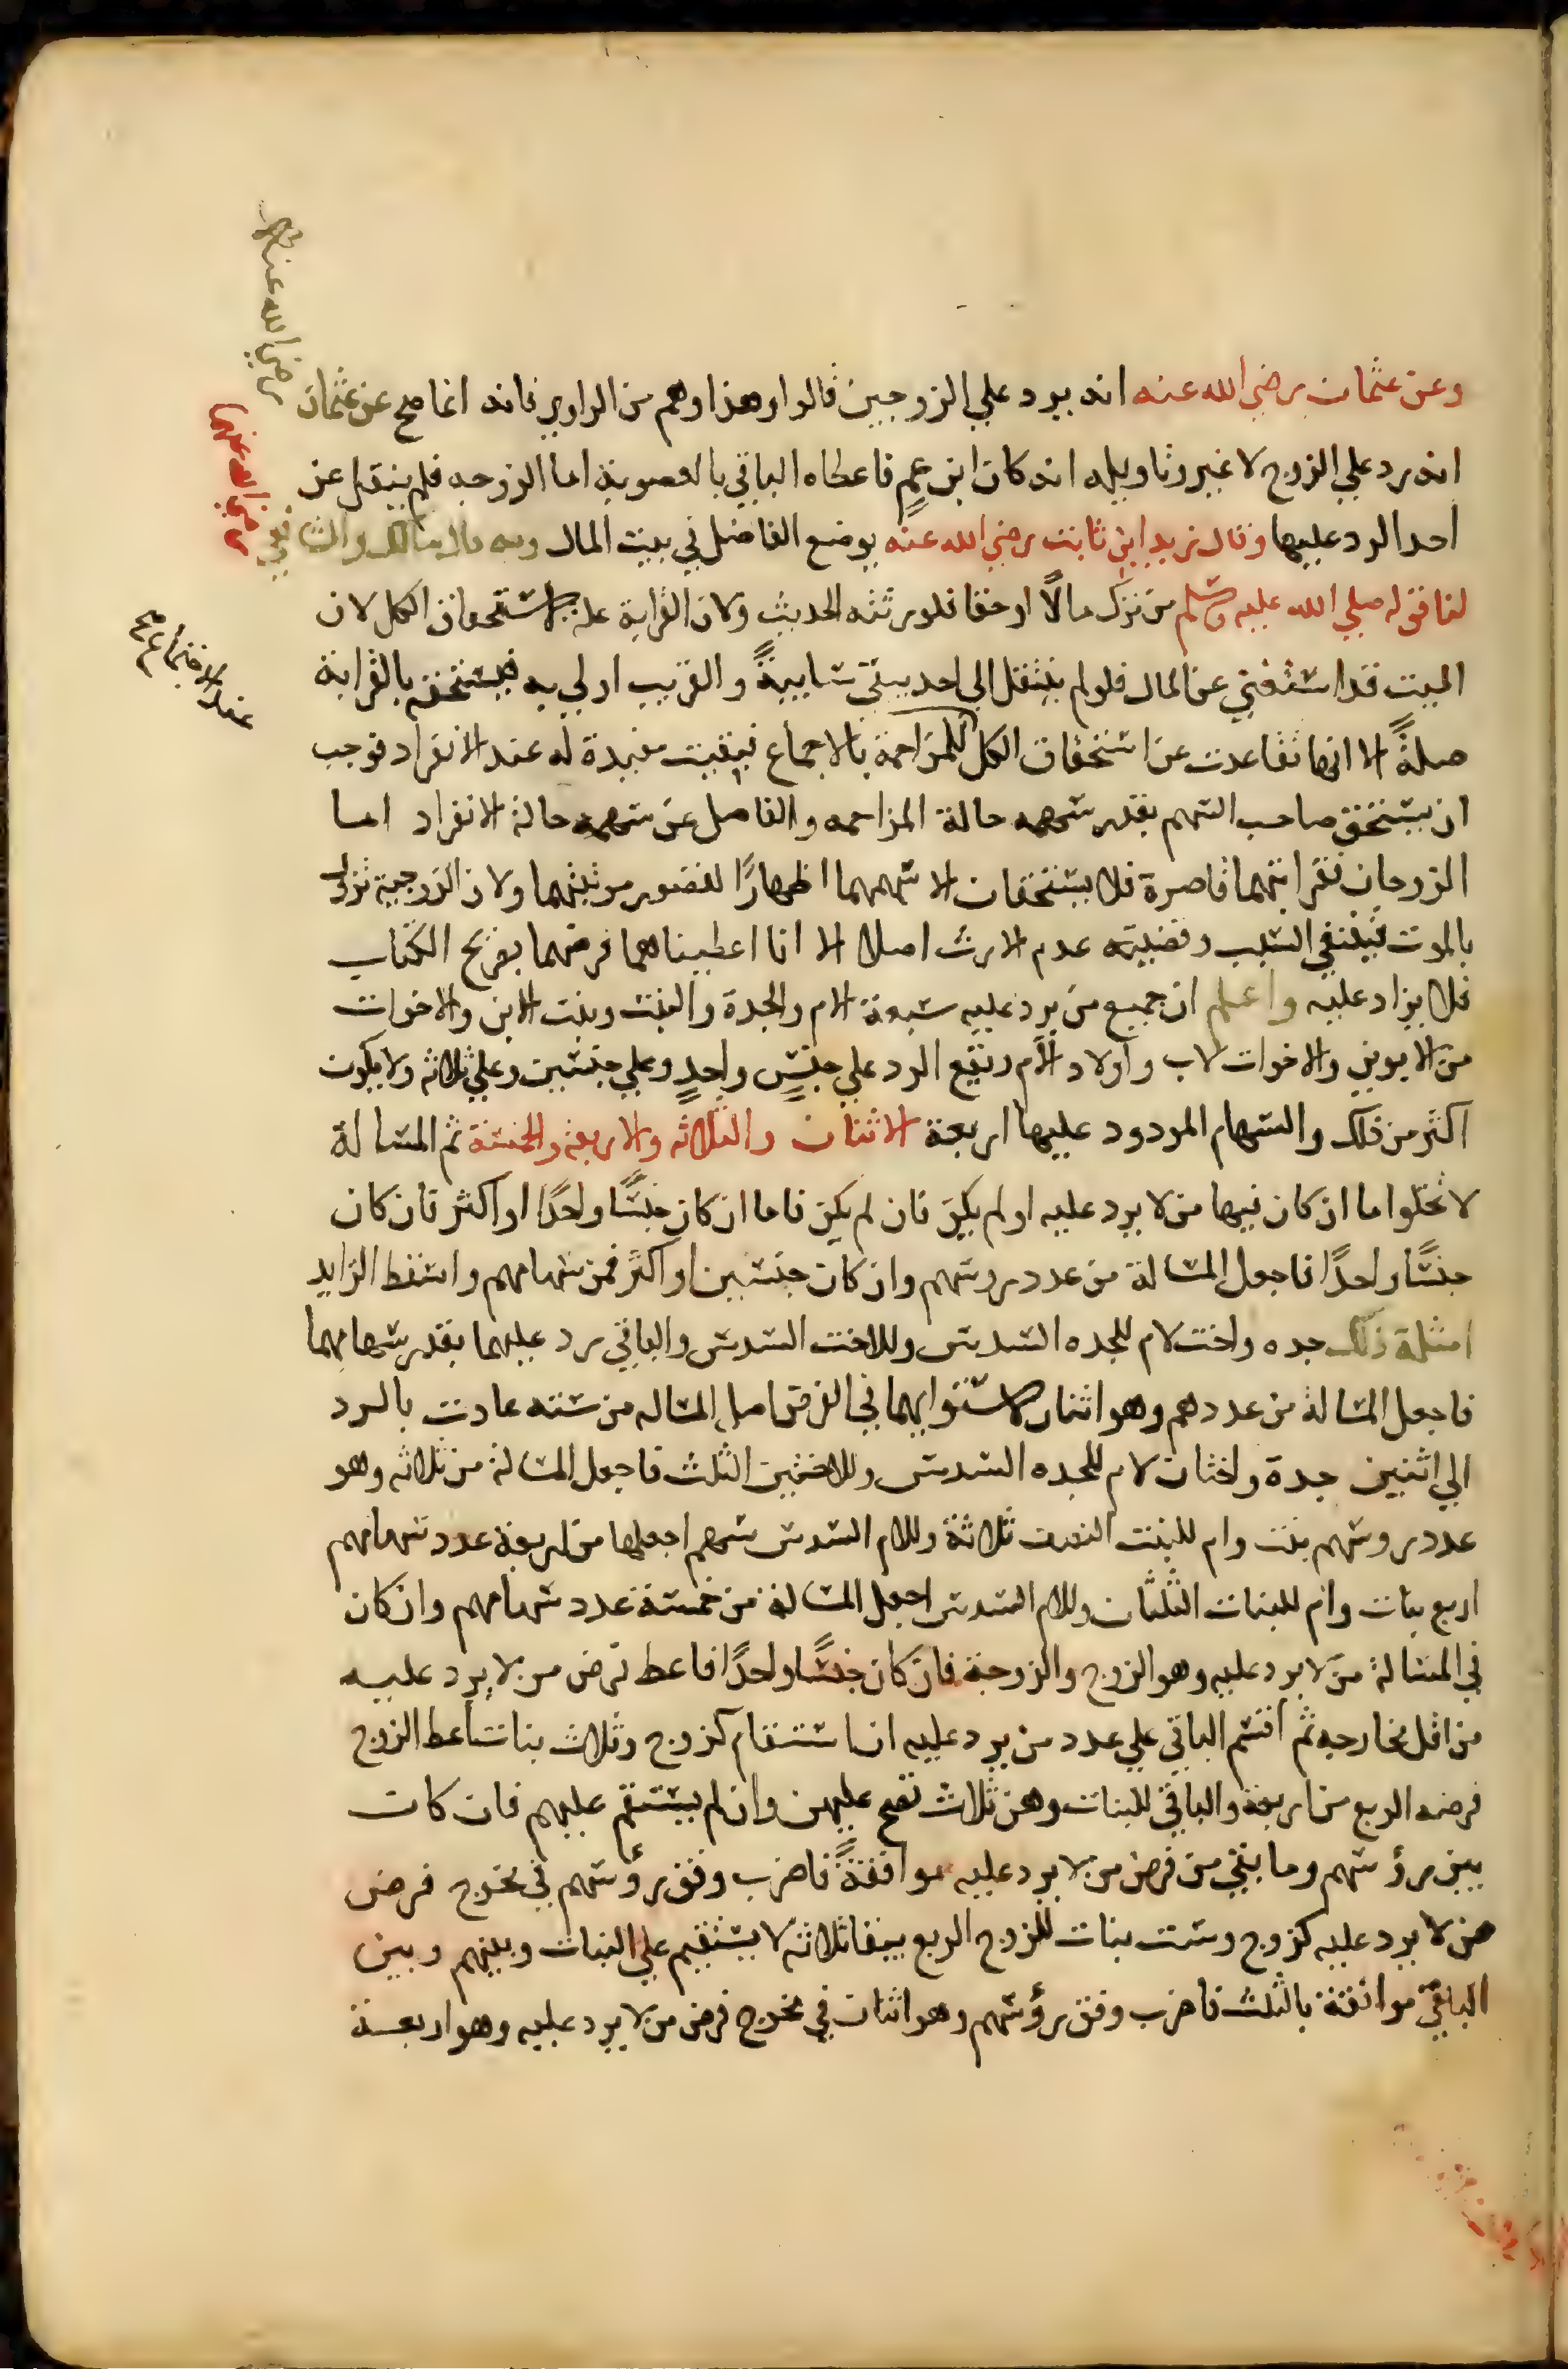 وعن عثمان رضي الله عنه انه يرد علي الزوجين قالوا وهذا وهم من الراوي فانه انما صح عن عثمان
رضي الله عنه
انه رد علي الزوج لا غير وتاويله انه كان ابن عم فاعطاه الباقي بالعصوبة اما الزوجه فلم ينقل عن
احد الرد عليها وقال زيد ابن ثابت رضي الله عنه يوضع الفاضل في بيت المال وبه قال مالك والشافعي
رضي الله عنهما
لنا قوله صلي الله عليه وسلم من ترك مالًا او حقا فلورثته الحديث ولان القرابة علة لاستحقاق الكل لان
الميت قد استغني عن المال فلو لم ينتقل الي احد يبقي سايبةً والقريب اولي به فيستحقه بالقرابة
صلةً الا انها تقاعدت عن استحقاق الكل للمزاحمة بالاجماع فبقيت مفيدة له عند الانفراد فوجب
عند الاجتماع صح
ان يستحق صاحب السهم بقدر سهمه حالة المزاحمه والفاضل عن سهمه حالة الانفراد اما
الزوجان فقرابتهما قاصرة فلا يستحقان الا سهمهما اظهارًا لقصور مرتبتهما ولان الزوجية تزول
بالموت فينتفي السبب وقضيته عدم الارث اصلا الا انا اعطيناهما فرضهما بصريح الكتاب
فلا يزاد عليه واعلم ان جميع من يرد عليه سبعة الام والجدة والبنت وبنت الابن والاخوات
من الابوين والاخوات لاب واولاد الأم ويقع الرد علي جنسٍ واحدٍ وعلي جنسين وعلي ثلاثه ولا يكون
اكثر من ذلك والسهام المردود عليها اربعة الاثنان والثلاثه والاربعة والخمسة ثم المسالة
لا تخلوا اما ان كان فيها من لا يرد عليه او لم يكن فان لم يكن فاما ان كان جنسًا واحدًا او اكثر فان كان
جنسًا واحدًا فاجعل المسالة من عدد روسهم وان كان جنسين او اكثر فمن سهامهم واسقط الزايد
امثلة ذلك جده واخت لام للجده السدس وللاخت السدس والباقي رد عليهما بقدر سهامهما
فاجعل المسالة من عددهم وهو اثنان لاستوايهما في الفرض اصل المساله من سته عادت بالرد
الي اثنين جدة واختان لام للجده السدس وللاختين الثلث فاجعل المسالة من ثلاثه وهو
عدد روسهم بنت وام للبنت النصف ثلاثة وللام السدس سهم اجعلها من اربعة عدد سهامهم
اربع بنات وام للبنات الثلثان وللام السدس اجعل المسالة من خمسة عدد سهامهم وان كان
في المسالة من لا يرد عليه وهو الزوج والزوجة فان كان جنسًا واحدًا فاعط فرض من لا يرد عليه
من اقل مخارجه ثم اقسم الباقي علي عدد من يرد عليه ان استقام كزوج وثلاث بنات اعط الزوج
فرضه الربع من اربعة والباقي للبنات وهن ثلاث تصح عليهن وان لم يستقم عليهم فان كان
بين رؤسهم وما بقي من فرض من لا يرد عليه موافقةً فاضرب وفق رؤسهم في مخرج فرض
من لا يرد عليه كزوج وست بنات للزوج الربع يبقا ثلاثه لا يستقيم علي البنات وبينهم وبين
الباقي موافقة بالثلث فاضرب وفق رؤسهم وهو اثنان في مخرج فرض من لا يرد عليه وهو اربعة